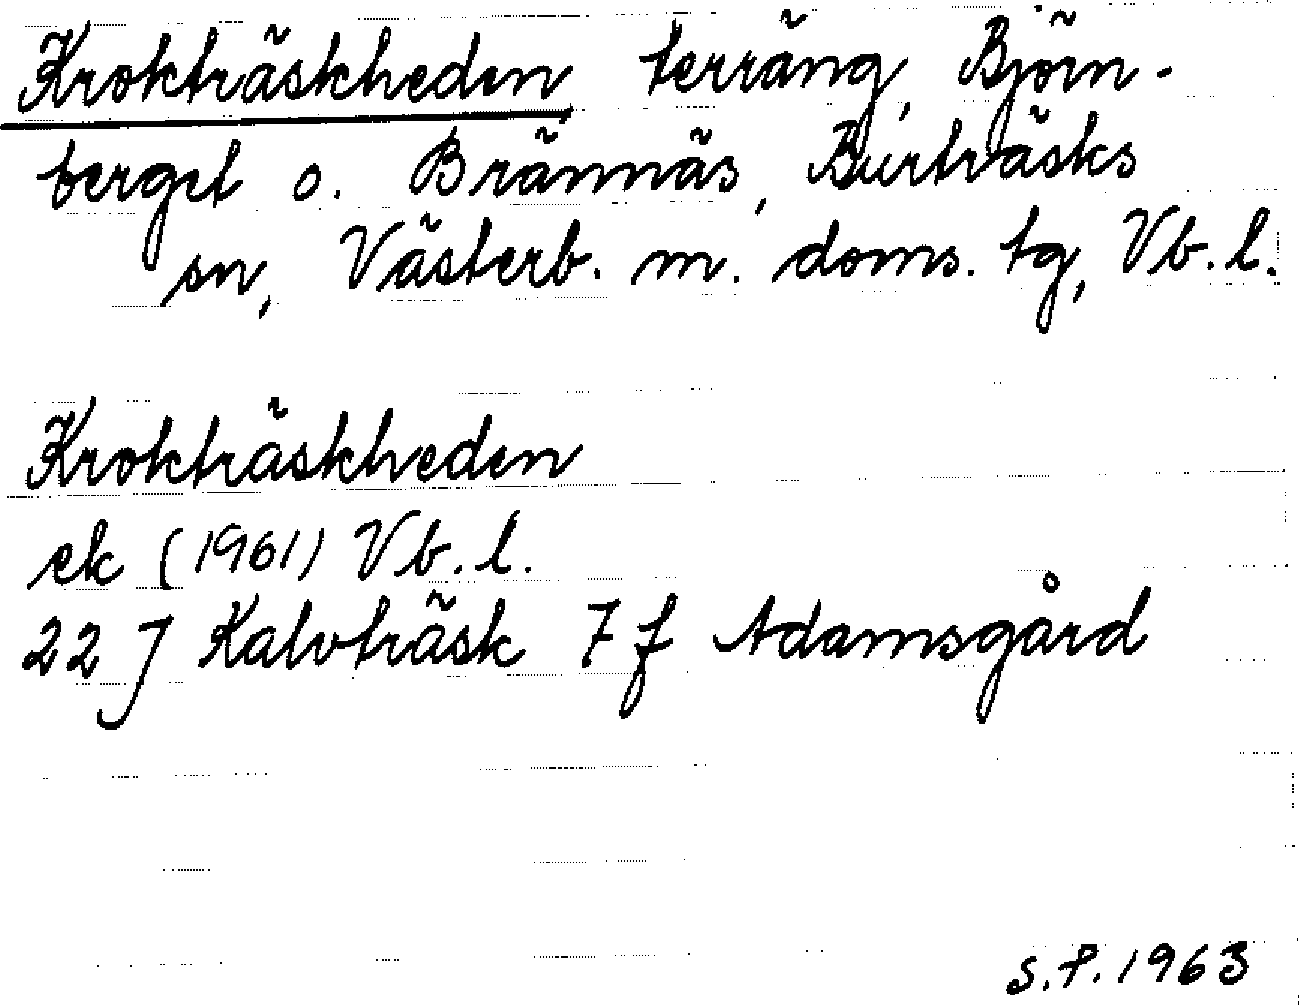 Krokträskheden, terräng, Björn-
berget o. Brännäs, Burträsks
sn, Västerb. m. doms. tg, Vb. l.
Krokträskheden
ek (1961) Vb. l.
22 J Kalvträsk 7 f Adamsgård
S.P. 1963